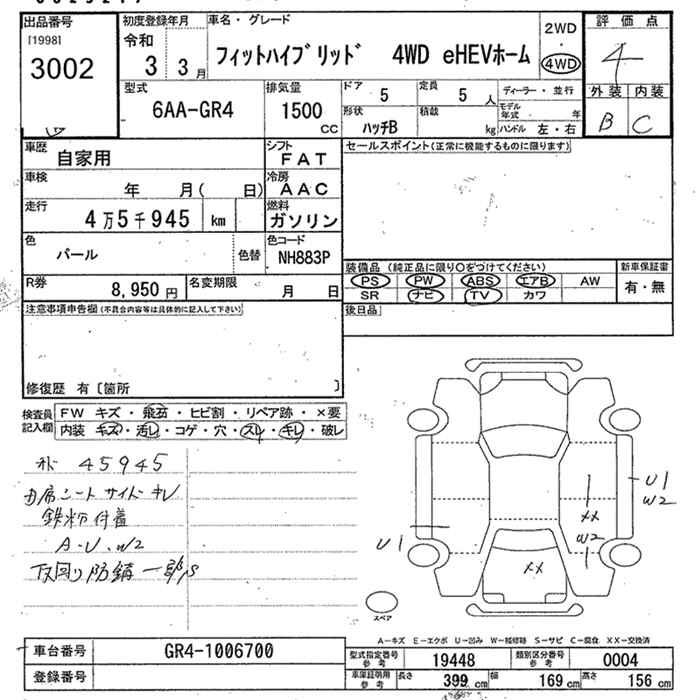 出品番号 初度登録年月 車名・グレード 2WD 評価点
[1998] 令和 ・
3002 3 3月 フィットハイブリッド 4WD eHEVホーム 4WD 4
型式 排気量 ドア 5 定員 5人 ディーラー・並行 外装 内装
6AA-GR4 1500cc 形状 ハッチB 積載 kg モデル年式 年 B C
ハンドル 左・右
車歴 自家用 シフト FAT セールスポイント(正常に機能するものに限ります)
車検 年 月( 日) 冷房 AAC
走行 4万5千945 km 燃料 ガソリン
色 パール 色替 色コード NH883P
装備品 (純正品に限り○をつけてください) 新車保証書
R券 8,950円 名変期限 月 日 PS PW ABS エアB AW 有・無
SR ナビ TV カワ
注意事項申告欄(不具合内容等は具体的に記入して下さい) 後日品
修復歴 有〔箇所 〕
検査員 FW キズ・飛石・ヒビ割・リペア跡・×要
記入欄 内装 キズ・汚レ・コゲ・穴・スレ・キレ・破レ
45945
席シート サイド キレ
鉄粉付着
A・U・W2
下回り防錆一部S
U1
W2
XX
W2
U1
XX
スペア
A―キズ E―エクボ U―凹み W―補修跡 S―サビ C―腐食 XX―交換済
車台番号 GR4-1006700 型式指定番号 参考 19448 類別区分番号 参考 0004
登録番号 車庫証明用 参考 長さ 399 cm 幅 169 cm 高さ 156 cm